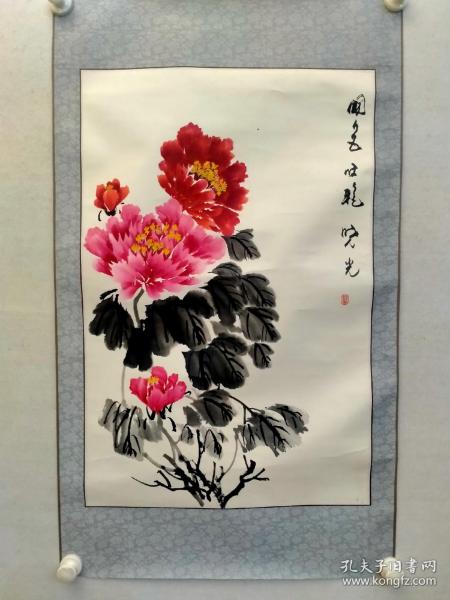 國色
晓光
孔夫子旧书网
www.kongfz.com